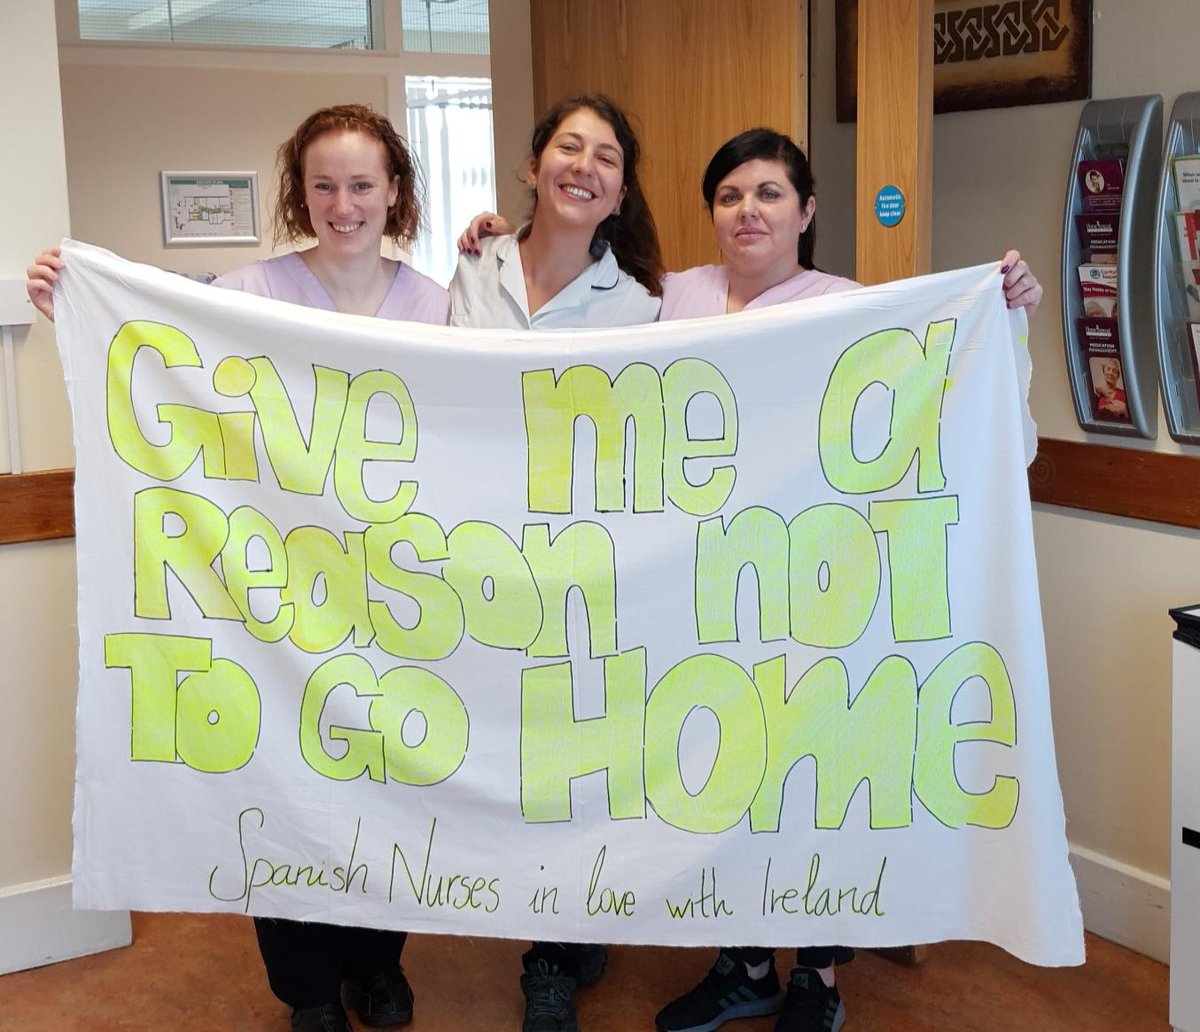 Give me a
Reason not
To Go Home
Spanish Nurses in love with Ireland
Automatic
fire door
keep clear
MEDICATION
MANAGEMENT
MEDICATION
MANAGEMENT